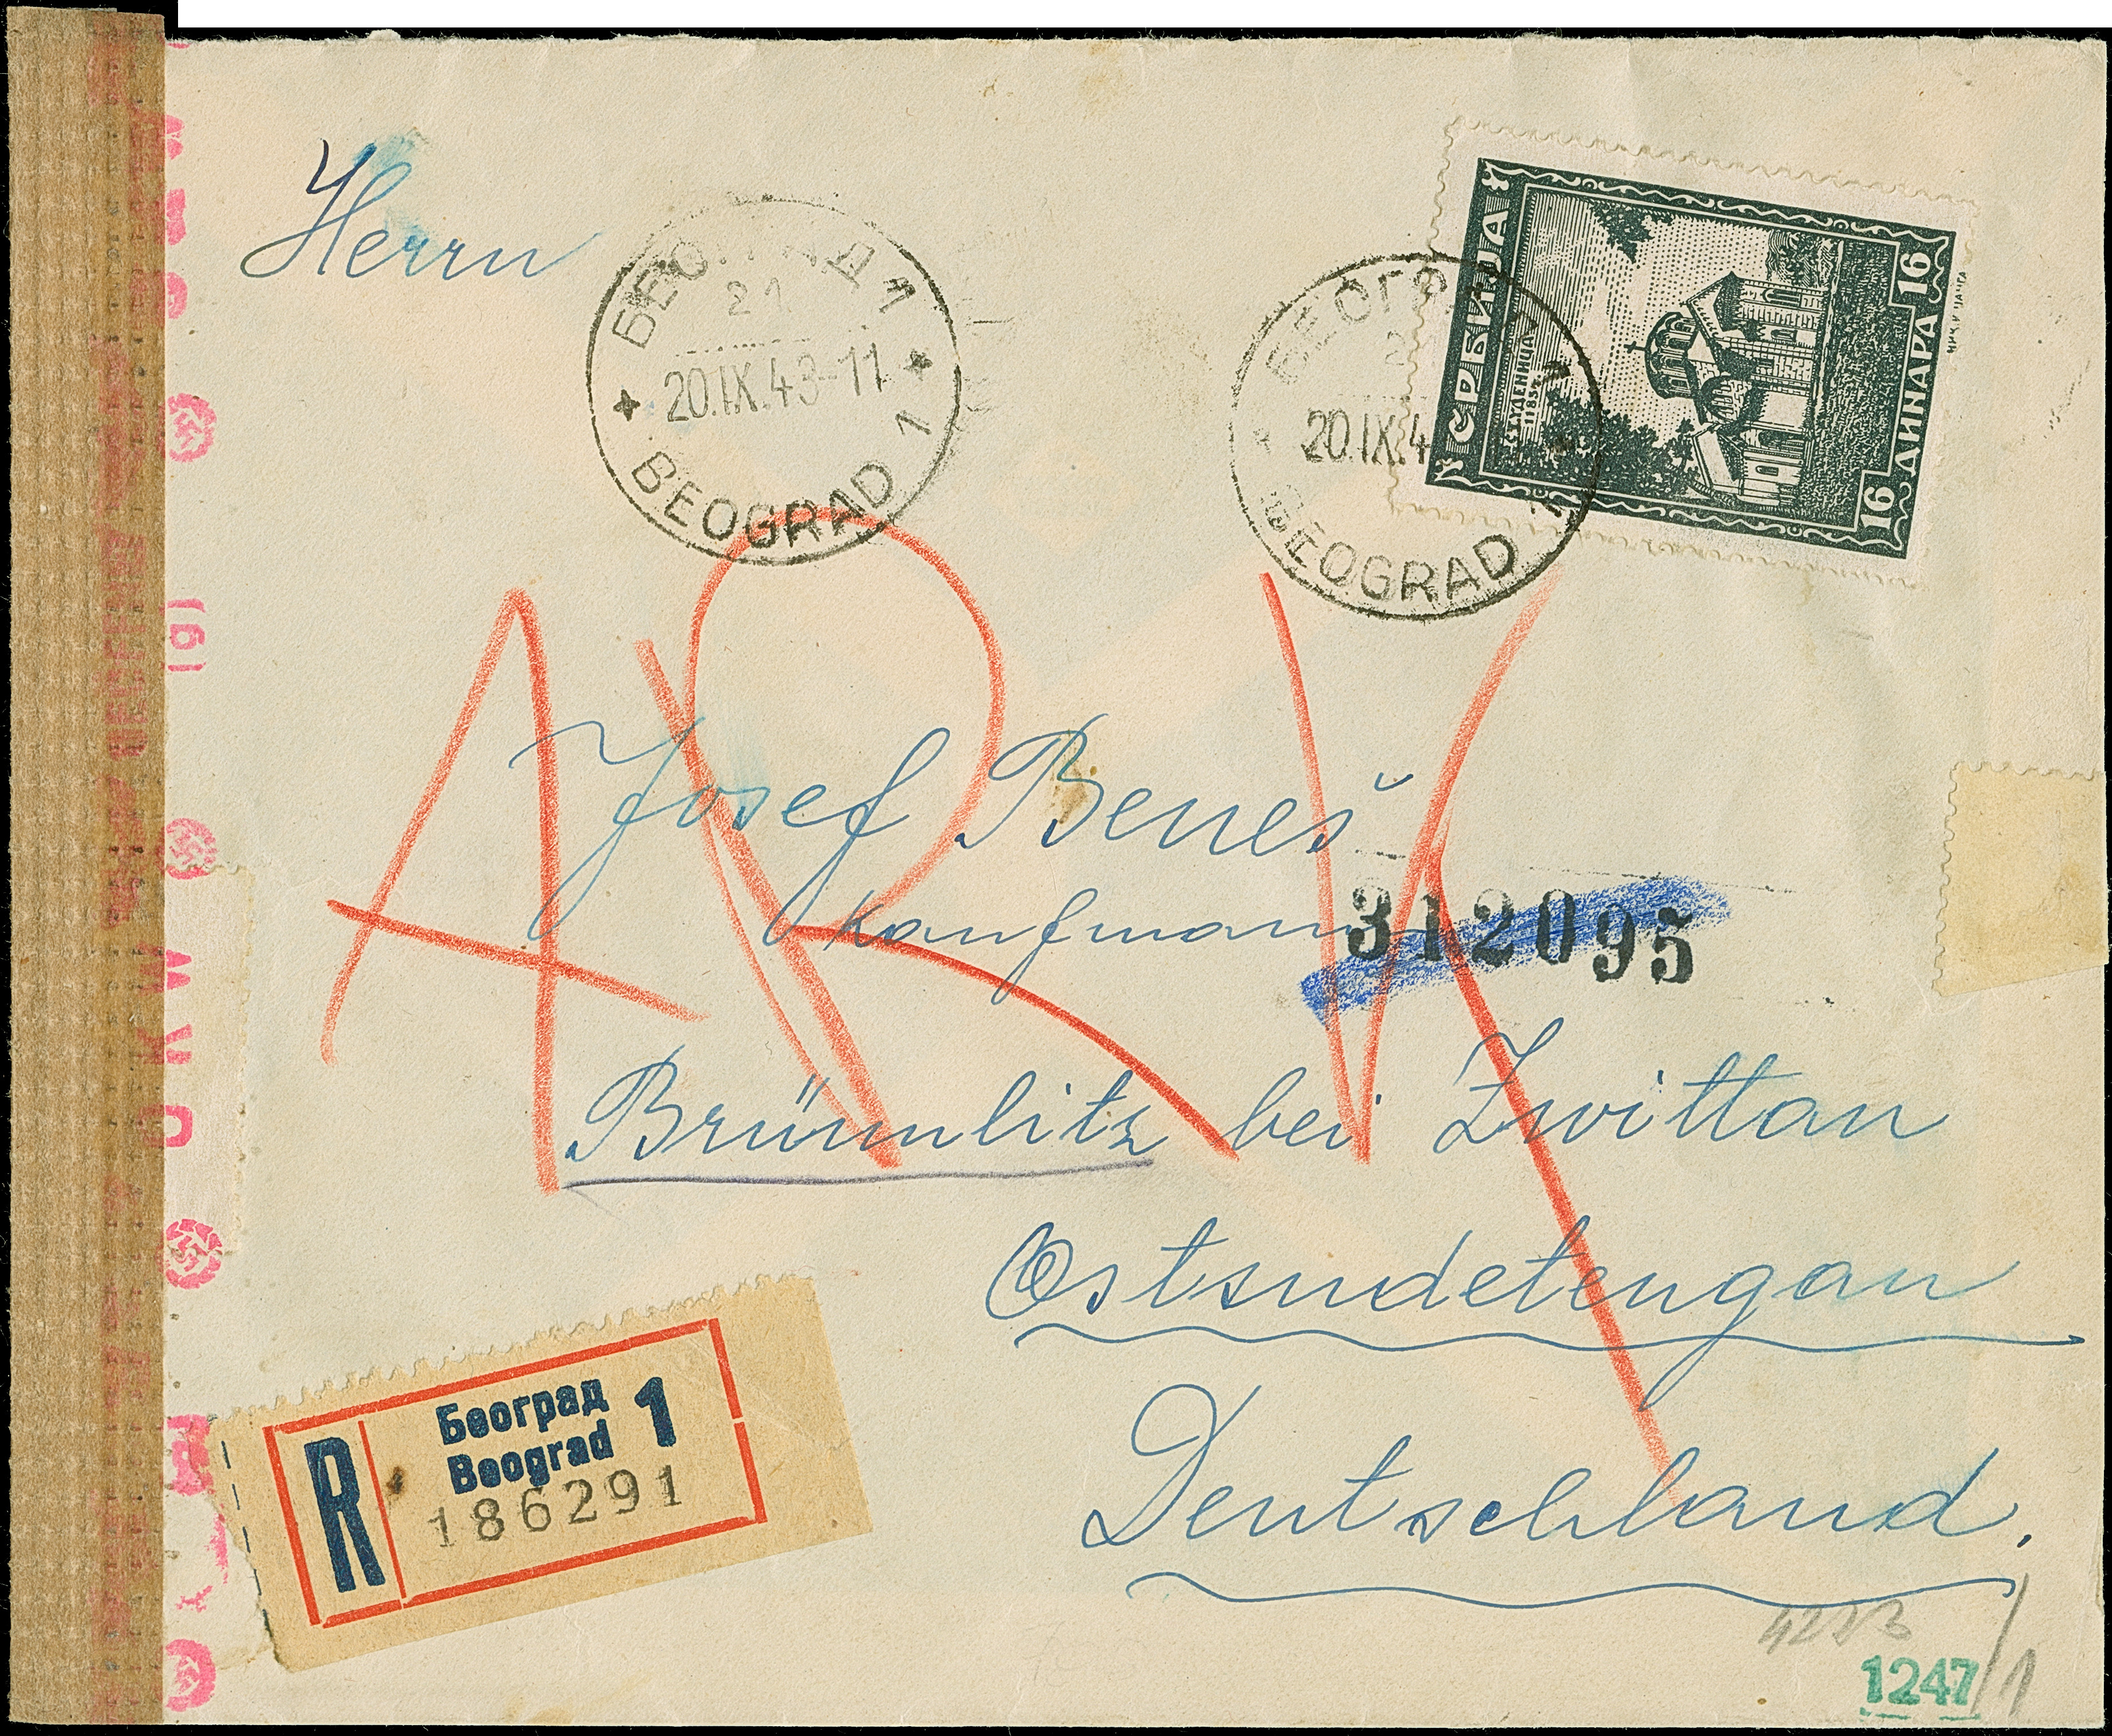 Herrn
БЕОГРАД 1
21
20.IX.43-11
BEOGRAD 1
БЕОГРАД 1
20.IX.4
BEOGRAD 1
СРБИЈА
СТУДЕНИЦА
1183
16 ДИНАРА 16
A R V
Josef Beneš
Kaufmann
312095
Brünnlitz bei Zwittau
Ostsudetengau
Deutschland.
R
Београд
Beograd
1
186291
1247/1